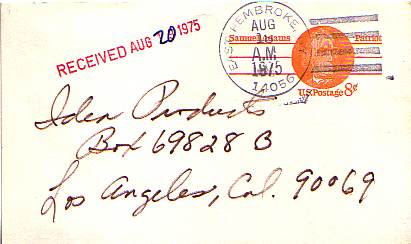 RECEIVED AUG 20 1975
EAST PEMBROKE
AUG
A.M
1975
14056
Samuel Adams Patriot
U.S. Postage 8¢
Idea Products
Box 69828 B
Los Angeles, Cal. 90069